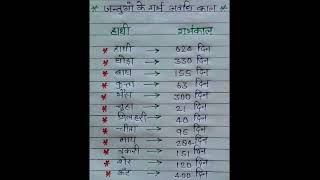 * जन्तुओ के गर्भ अवधि काल *
हाथी गर्भकाल
* हाथी → 624 दिन
* घोड़ा → 330 दिन
* बाघ → 155 दिन
* कुत्ता → 63 दिन
* भैंस → 300 दिन
* चूहा → 21 दिन
* गिलहरी → 40 दिन
* चीता → 95 दिन
* गाय → 284 दिन
* बकरी → 151 दिन
* शेर → 120 दिन
* ऊंट → 400 दिन